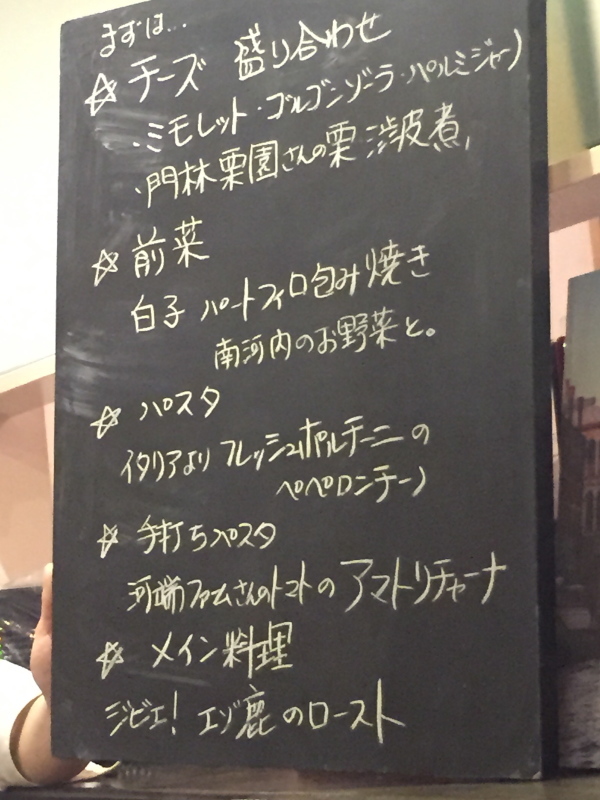 まずは...
☆ チーズ 盛り合わせ
・ミモレット・ゴルゴンゾーラ・パルミジャーノ
・門林栗園さんの栗 渋皮煮,
☆ 前菜
白子 パートフィロ包み焼き
南河内のお野菜と。
☆ パスタ
イタリアより フレッシュポルチーニの
ペペロンチーノ
☆ 手打ちパスタ
河端ファームさんのトマトの アマトリチャーナ
☆ メイン料理
ジビエ! エゾ鹿のロースト